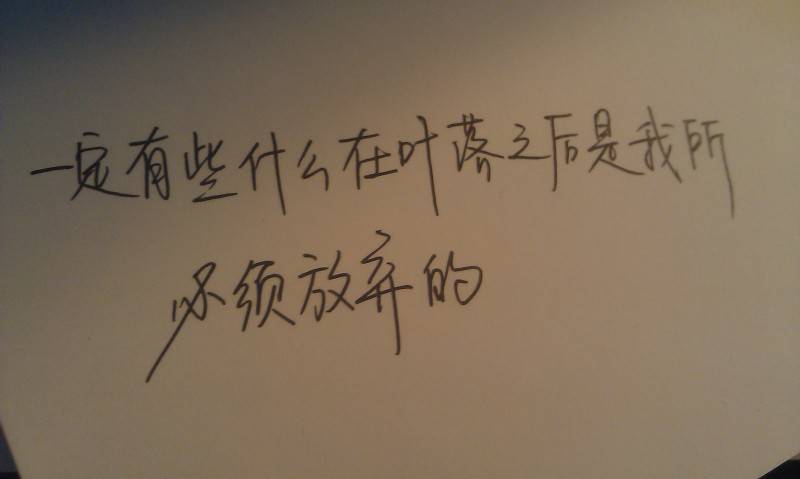 一定有些什么在叶落之后是我所
必须放弃的